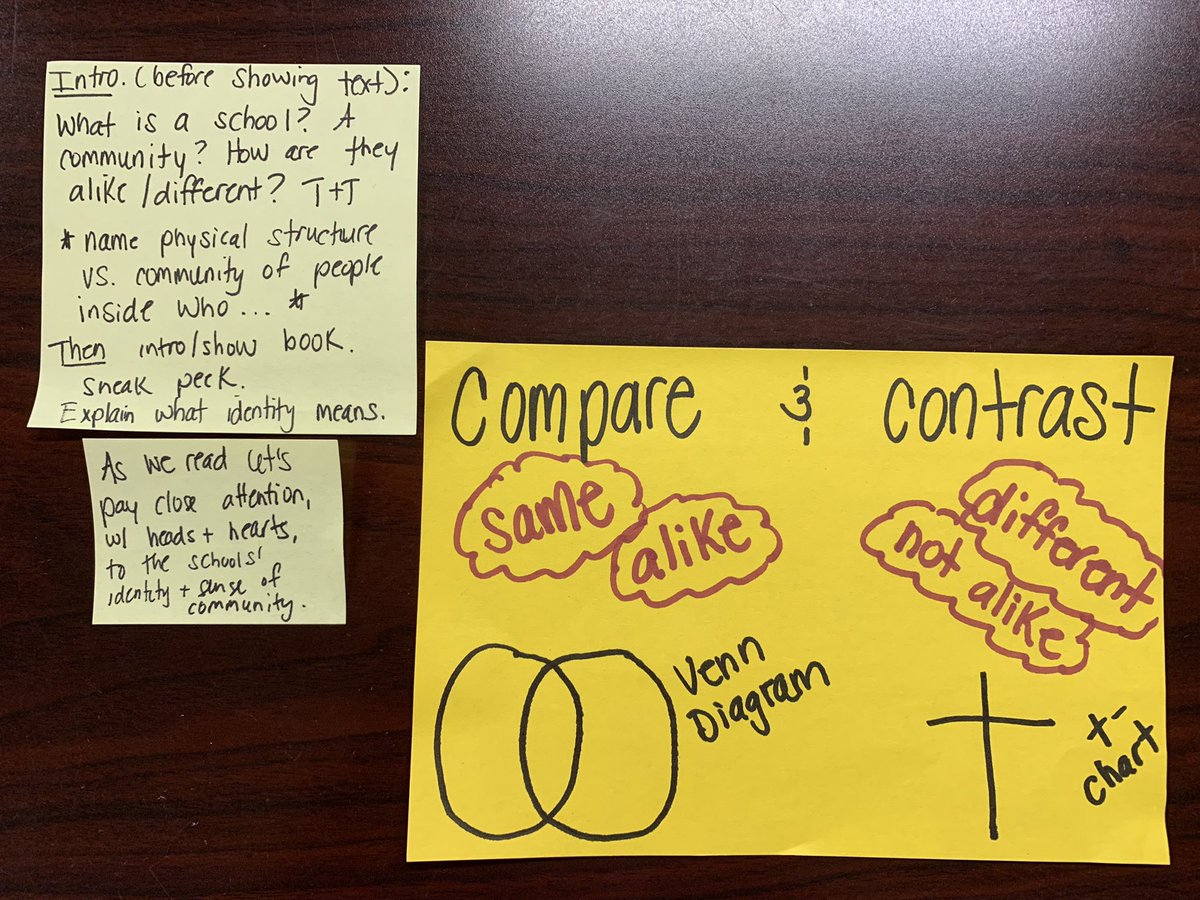 Intro. (before showing text):
What is a school? A
community? How are they
alike/different? T+T
* name physical structure
vs. community of people
inside who... *
Then intro/show book.
sneak peek.
Explain what identity means.
As we read let's
pay close attention,
w/ heads + hearts,
to the schools'
identity + sense of
community.
Compare & contrast
same
alike
different
not alike
Venn
Diagram
t-
chart